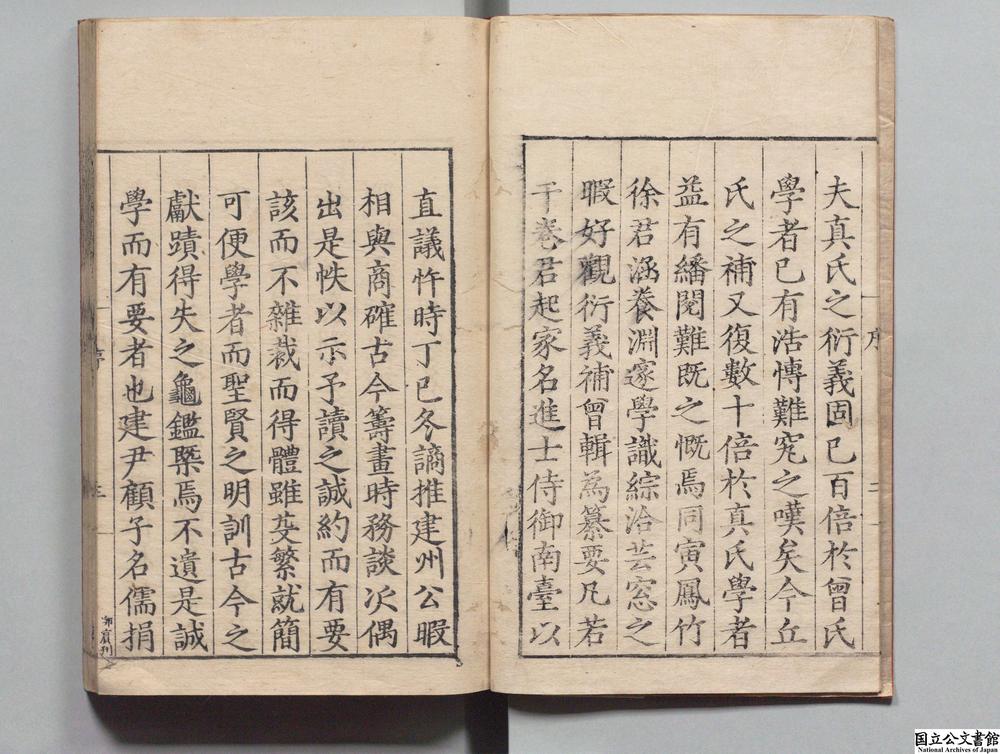 序
二
夫真氏之衍義固已百倍於曾氏
學者已有浩慱難究之嘆矣今丘
氏之補又復數十倍於真氏學者
益有繙閱難既之慨焉同寅鳳竹
徐君涵養淵邃學識綜洽芸窓之
暇好觀衍義補曾輯為纂要凡若
干卷君起家名進士侍御南臺以
直議忤時丁巳冬謫推建州公暇
相與商確古今籌畫時務談次偶
出是帙以示予讀之誠約而有要
該而不雜裁而得體雖芟繁就簡
可便學者而聖賢之明訓古今之
獻蹟得失之龜鑑槩焉不遺是誠
學而有要者也建尹顧子名儒捐
序
三
國立公文書館
National Archives of Japan